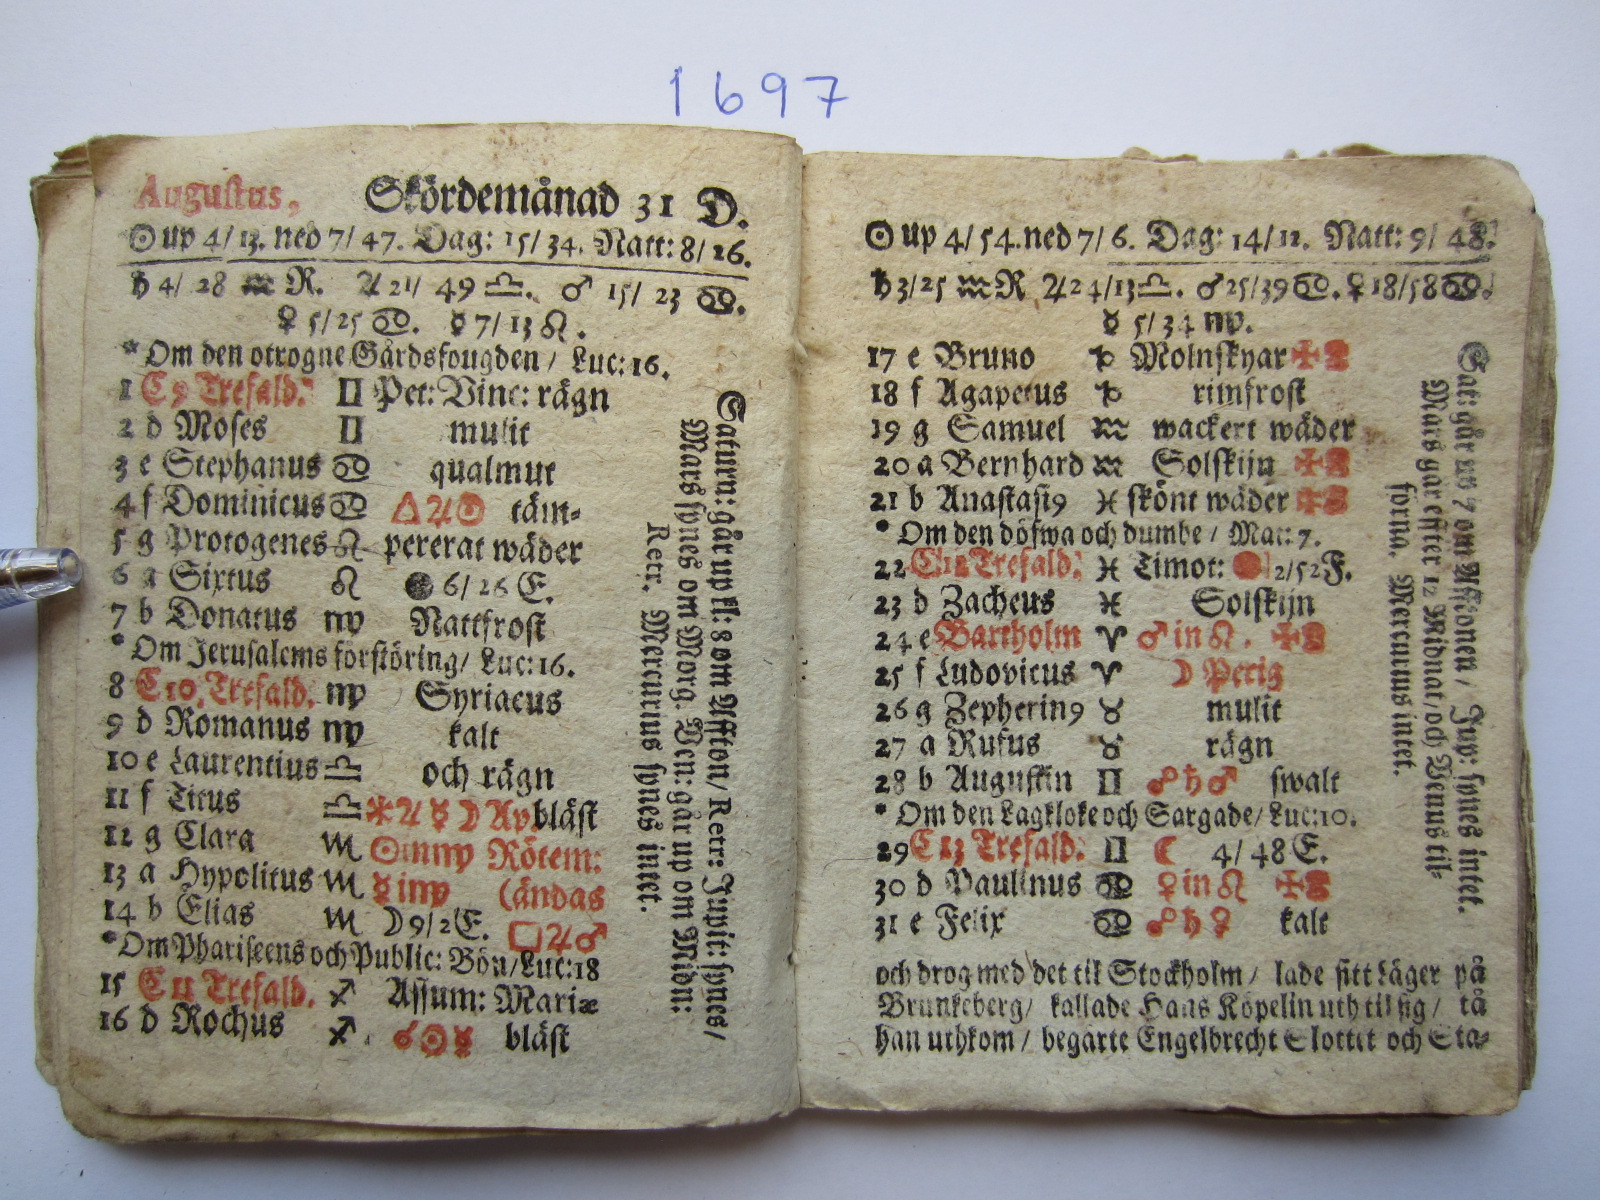 1697
Augustus, Skördemånad 31 D.
☉ up 4/13. ned 7/47. Dag: 15/34. Natt: 8/26.
♄ 4/28 ♒ R. ♃ 21/49 ♎. ♂ 15/23 ♋.
♀ 5/25 ♋. ☿ 7/13 ♌.
* Om den otrogne Gårdsfougden / Luc: 16.
1 C 9 Trefald. ♊ Pet: Vinc: rägn
2 d Moses ♊ mulit
3 e Stephanus ♋ qualmut
4 f Dominicus ♋ △ ♃ ☉ täm-
5 g Protogenes ♌ pererat wäder
6 a Sixtus ♌ ● 6/26 E.
7 b Donatus ♍ Nattfrost
* Om Jerusalems förstöring / Luc: 16.
8 C 10. Trefald. ♍ Syriacus
9 d Romanus ♍ kalt
10 e Laurentius ♎ och rägn
11 f Titus ♎ ⚹ ♃ ☿ ☽ Ap bläst
12 g Clara ♏ ☉ in ♍ Rötem:
13 a Hypolitus ♏ ☿ i ♍ (ändas
14 b Elias ♏ ☽ 9/2 E. □ ♃ ♂
* Om Phariseens och Public: Bön / Luc: 18
15 C 11 Trefald. ♐ Assum: Mariæ
16 d Rochus ♐. ☌ ☉ ☿ bläst
Saturn: går up kl: 8 om Affton / Retr: Jupit: synes /
Mars synes om Morg. Ven: går up om Midn:
Retr. Mercurius synes intet.
☉ up 4/54. ned 7/6. Dag: 14/12. Natt: 9/48.
♄ 3/25 ♒ R ♃ 24/13 ♎. ♂ 25/39 ♋. ♀ 18/58 ♋.
☿ 5/34 ♍.
17 e Bruno ♑ Molnskyar ✠
18 f Agapetus ♑ rimfrost
19 g Samuel ♒ wackert wäder
20 a Bernhard ♒ Solskijn ✠
21 b Anastasi9 ♓ skönt wäder ✠
* Om den döfwa och dumbe / Mar: 7.
22 C 12 Trefald. ♓ Timot: 2/52 F.
23 d Zacheus ♓ Solskijn
24 e Bartholm ♈ ♂ in ♌. ✠
25 f Ludovicus ♈ ☽ Perig
26 g Zepherin9 ♉ mulit
27 a Rufus ♉ rägn
28 b Augustin ♊ ☍ ♄ ♂ swalt
* Om den Lagkloke och Sargade / Luc: 10.
29 C 13 Trefald. ♊ ☾ 4/48 E.
30 d Paulinus ♋ ♀ in ♌ ✠
31 e Felix ♋ ☍ ♄ ♀ kalt
Sat: går up 7 om Afftonen / Jup: synes intet.
Mars går efter 12 Midnat / och Venus til-
förna. Mercurius intet.
och drog med det til Stockholm / lade sitt Läger på
Brunkeberg / kallade Haas Köpelin uth til sig / tå
han uthkom / begärte Engelbrecht Slottet och Sta-